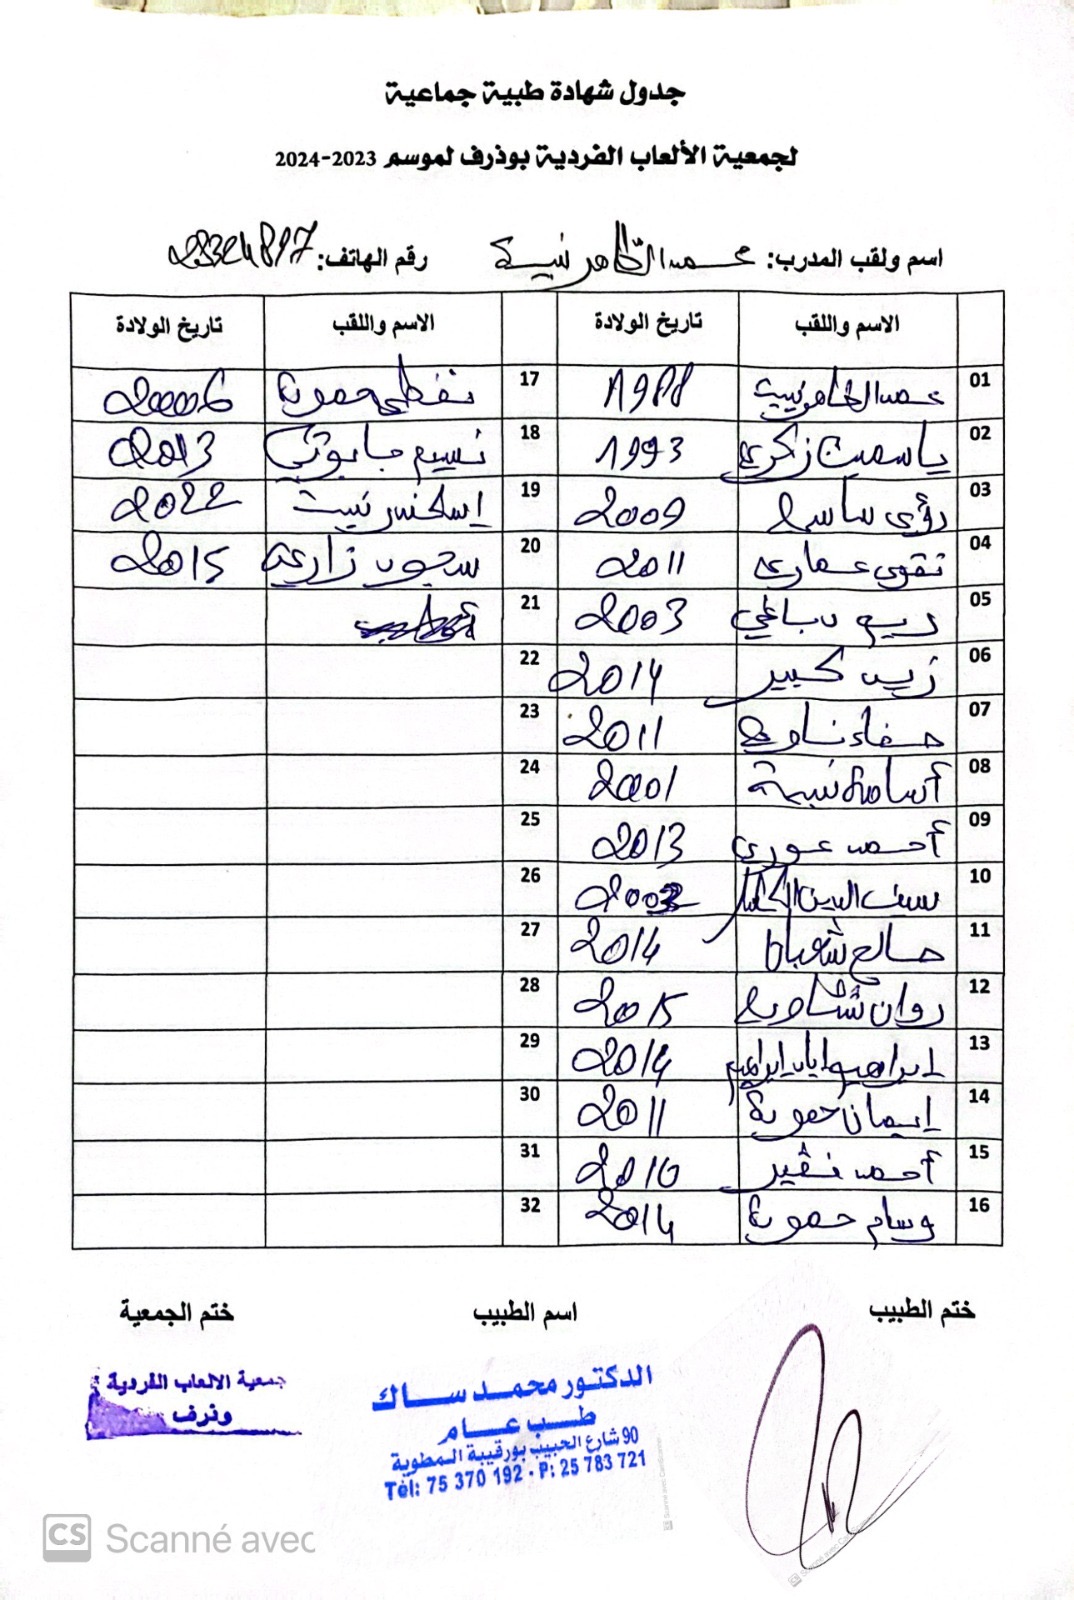 جدول شهادة طبية جماعية
لجمعية الألعاب الفردية بوذرف لموسم 2023-2024
اسم ولقب المدرب: محمد الطاهر نبية رقم الهاتف: 23324897
الاسم واللقب تاريخ الولادة الاسم واللقب تاريخ الولادة
01 محمد الطاهر نبية 1988 17 حمودة 2006
02 ياسمين زكري 1993 18 نسيم جابو 2013
03 رؤى ساسي 2009 19 إسكندر نبية 2022
04 تقوى عماري 2011 20 زاري 2015
05 ريم دباغي 2003 21
06 زينب كبير 2014 22
07 صفاء ناوي 2011 23
08 أسامة نبية 2001 24
09 أحمد عوري 2013 25
10 سيف الدين 2003 26
11 صالح شعبان 2014 27
12 روان شطاوي 2015 28
13 ابراهيم اياد ابراهيم 2014 29
14 إيمان حمودة 2011 30
15 أحمد نقير 2010 31
16 وسام حمودة 2014 32
ختم الطبيب اسم الطبيب ختم الجمعية
الدكتور محمد ساك
طب عام
90 شارع الحبيب بورقيبة المطوية
Tél: 75 370 192 - P: 25 783 721
جمعية الالعاب الفردية
وذرف
CS Scanné avec